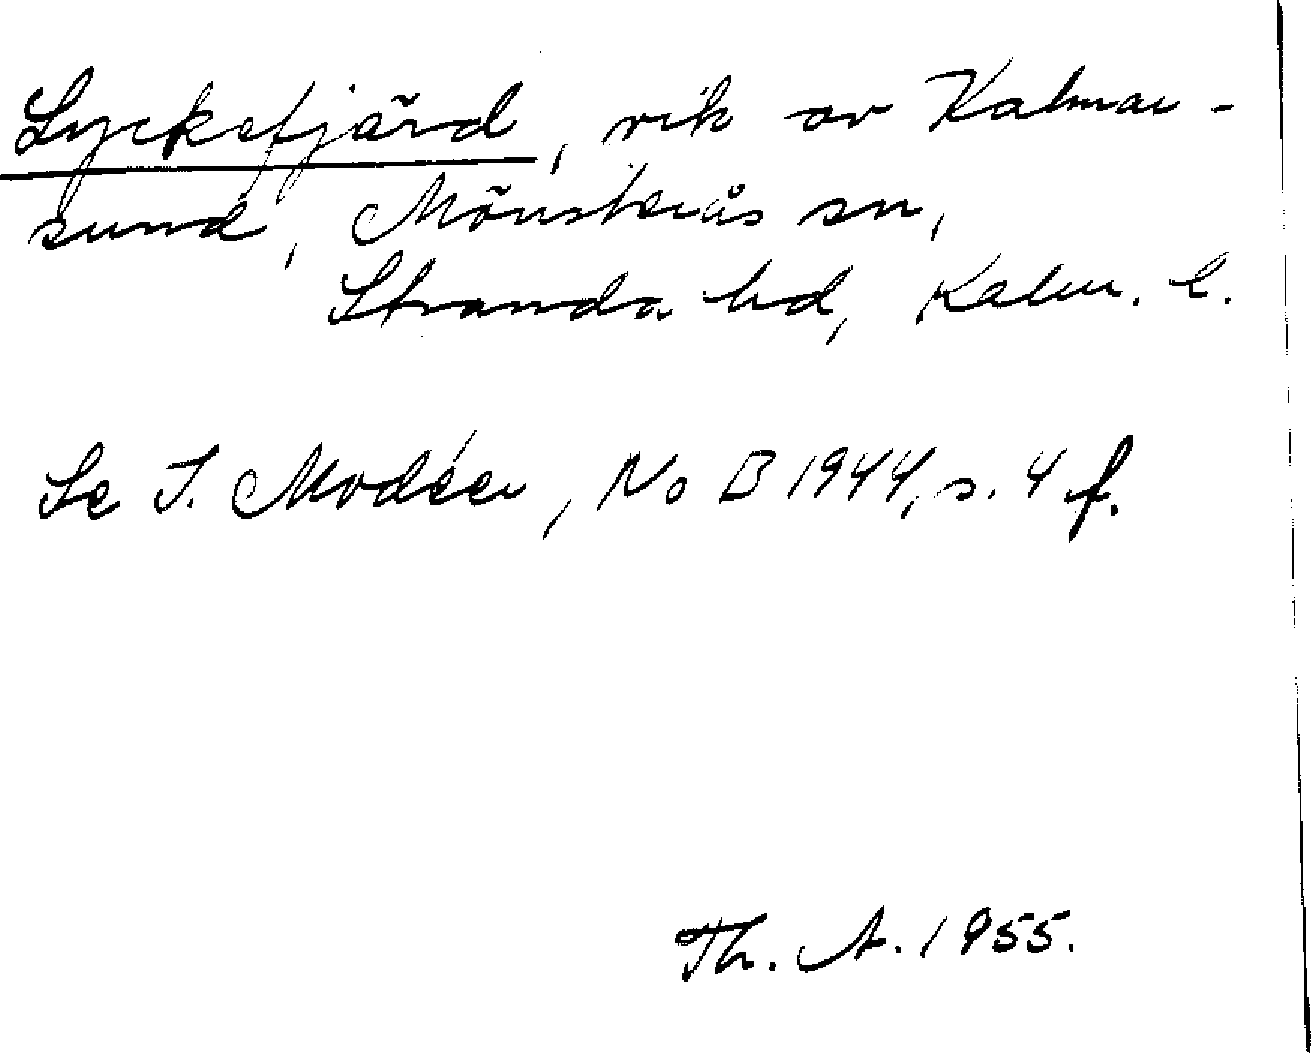 Lyckefjärd, vik av Kalmar-
sund, Mönsterås sn,
Stranda hd, Kalm. l.
Se I. Modéer, NoB 1944, s. 4 f.
Th. A. 1955.